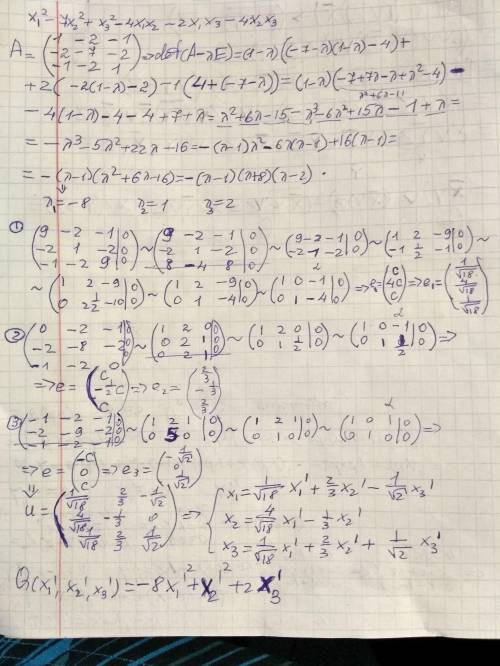 x₁² - 7x₂² + x₃² - 4x₁x₂ - 2x₁x₃ - 4x₂x₃
A = (1 -2 -1; -2 -7 -2; -1 -2 1) => det(A-λE) = (1-λ)((-7-λ)(1-λ)-4) +
+ 2(-2(1-λ)-2) - 1(4+(-7-λ)) = (1-λ)(-7+7λ-λ+λ²-4) -
λ²+6λ-11
- 4(1-λ) - 4 - 4 + 7 + λ = λ²+6λ-15 - λ³-6λ²+15λ - 1 + λ =
= -λ³ - 5λ² + 22λ - 16 = -(λ-1)λ² - 6λ(λ-1) + 16(λ-1) =
= -(λ-1)(λ²+6λ-16) = -(λ-1)(λ+8)(λ-2).
λ₁ = -8 λ₂ = 1 λ₃ = 2
① (9 -2 -1|0; -2 1 -2|0; -1 -2 9|0) ~ (9 -2 -1|0; -2 1 -2|0; 8 -4 8|0) ~ (9 -2 -1|0; -2 1 -2|0) ~ (1 2 -9|0; -1 ½ -1|0) ~
~ (1 2 -9|0; 0 2½ -10|0) ~ (1 2 -9|0; 0 1 -4|0) ~ (1 0 -1|0; 0 1 -4|0) => e = (C; 4C; C) => e₁ = (1/√18; 4/√18; 1/√18)
② (0 -2 -1|0; -2 -8 -2|0; -1 -2 0|0) ~ (1 2 0|0; 0 2 1|0) ~ (1 2 0|0; 0 1 ½|0) ~ (1 0 -1|0; 0 1 ½|0) =>
=> e = (C; -½C; C) => e₂ = (2/3; -1/3; 2/3)
③ (-1 -2 -1|0; -2 -9 -2|0) ~ (1 2 1|0; 0 5 0|0) ~ (1 2 1|0; 0 1 0|0) ~ (1 0 1|0; 0 1 0|0) =>
=> e = (-C; 0; C) => e₃ = (-1/√2; 0; 1/√2)
U = (1/√18 2/3 -1/√2; 4/√18 -1/3 0; 1/√18 2/3 1/√2) => { x₁ = 1/√18 x₁' + 2/3 x₂' - 1/√2 x₃'
x₂ = 4/√18 x₁' - 1/3 x₂'
x₃ = 1/√18 x₁' + 2/3 x₂' + 1/√2 x₃'
Q(x₁', x₂', x₃') = -8x₁'² + x₂'² + 2x₃'